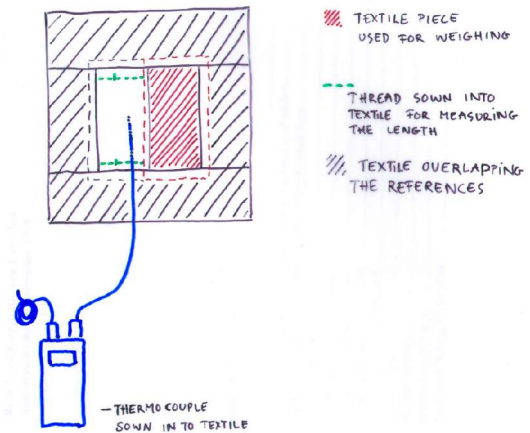 TEXTILE PIECE
USED FOR WEIGHING
THREAD SOWN INTO
TEXTILE FOR MEASURING
THE LENGTH
TEXTILE OVERLAPPING
THE REFERENCES
– THERMOCOUPLE
SOWN IN TO TEXTILE